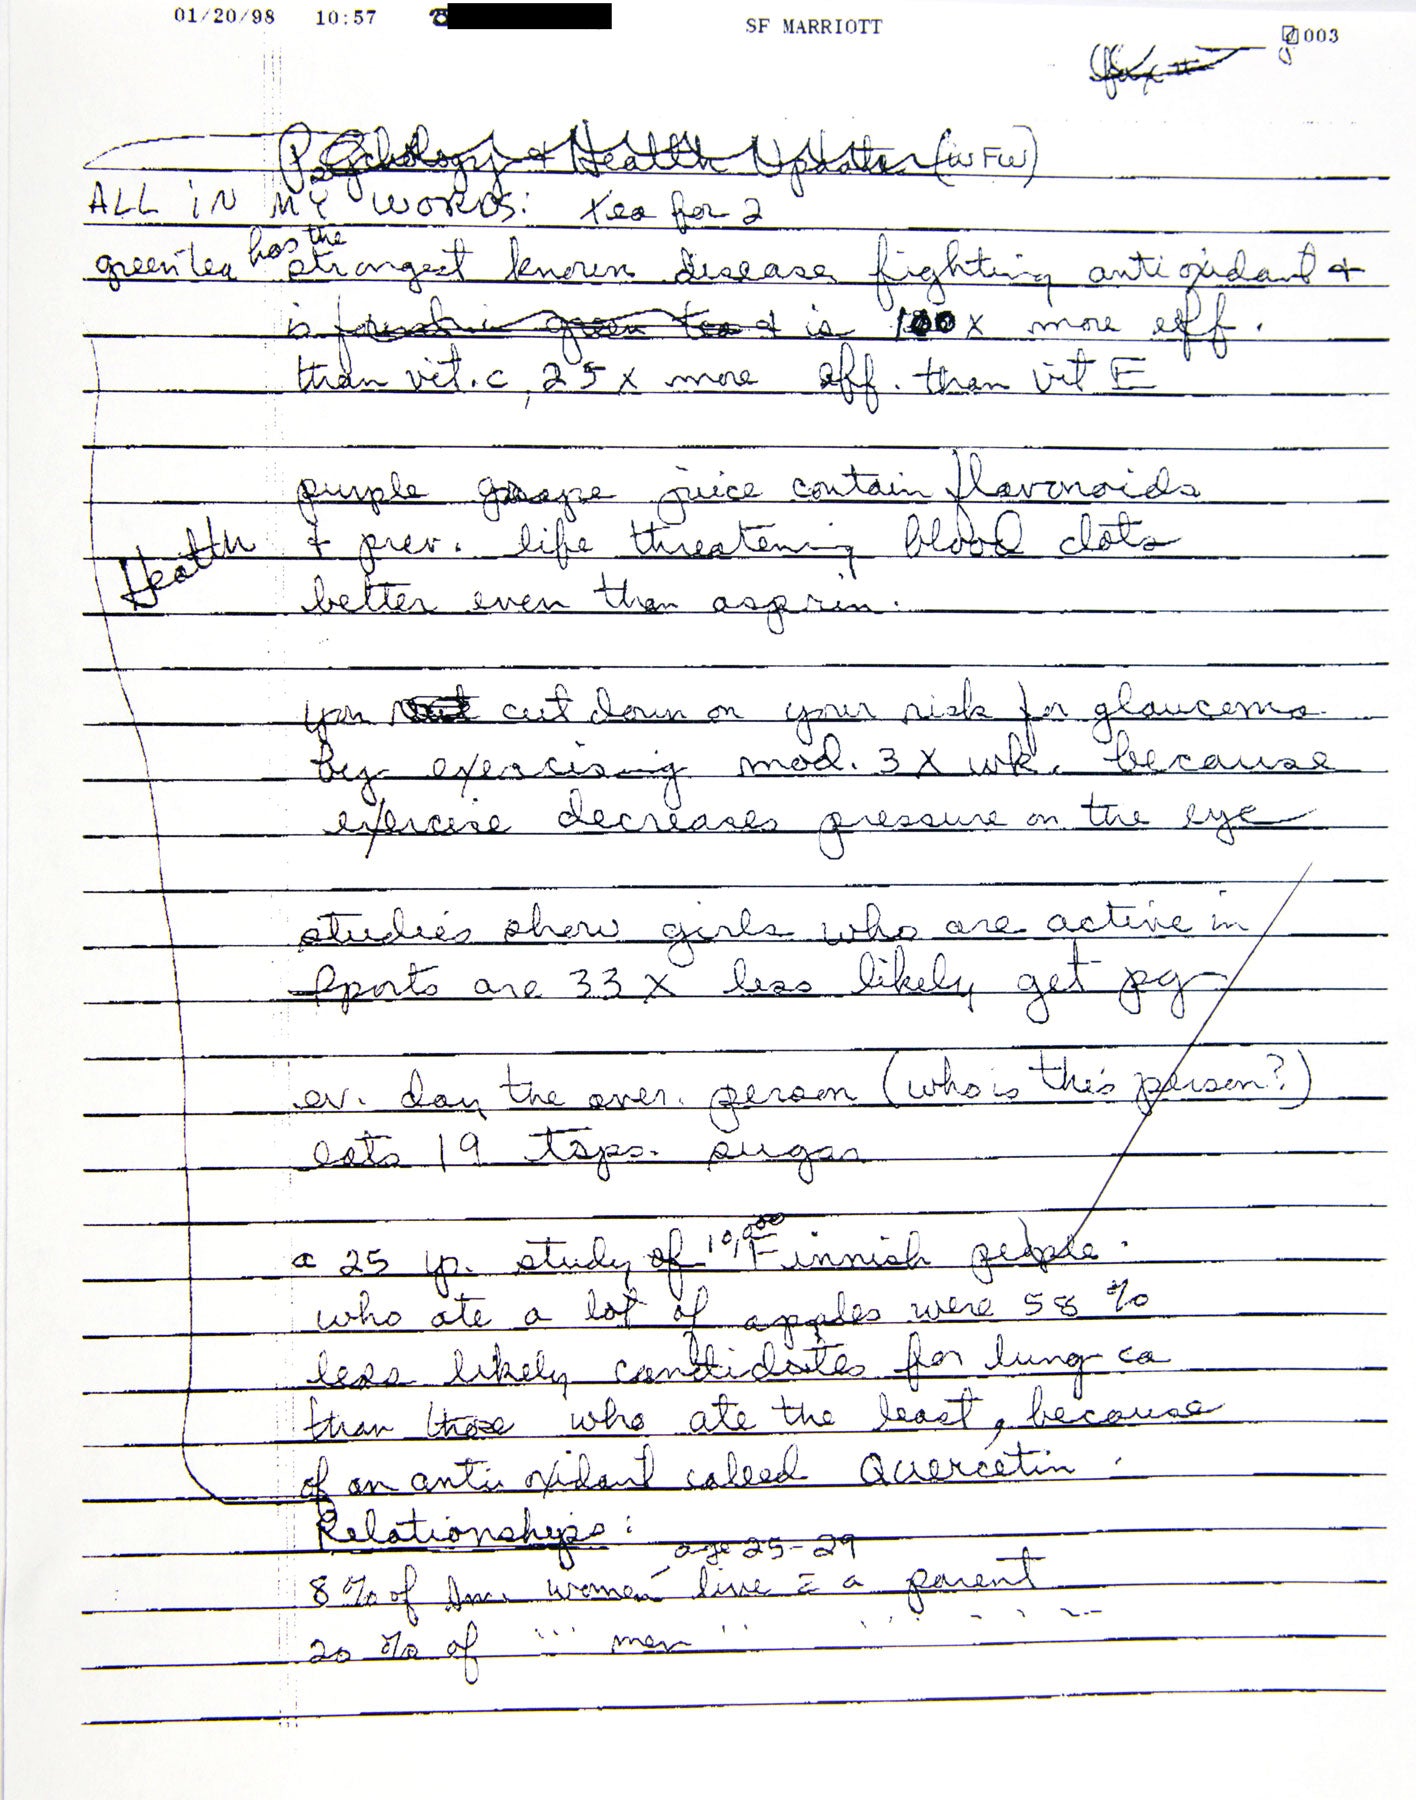 01/20/98 10:57 SF MARRIOTT 003
Psychology + Health Updates (WFW)
ALL iN MY WORDS: Tea for 2
green tea has the strongest known disease fighting antioxidant +
is found in green tea & is 100 x more eff.
than vit. c, 25 x more eff. than vit E
purple grape juice contain flavonoids
Health
+ prev. life threatening blood clots
better even than asprin.
you cut down on your risk for glaucoma
by exercising mod. 3 X wk. because
exercise decreases pressure on the eye
studies show girls who are active in
sports are 33 X less likely get pg
ev. day the aver. person (who is this person?)
eats 19 tsps. sugar
a 25 yr. study of 10,000 Finnish people.
who ate a lot of apples were 58 %
less likely candidates for lung ca
than those who ate the least, because
of an anti oxidant called Quercetin.
Relationships:
8 % of Amer women age 25-29 live c̄ a parent
20 % of " " men " "